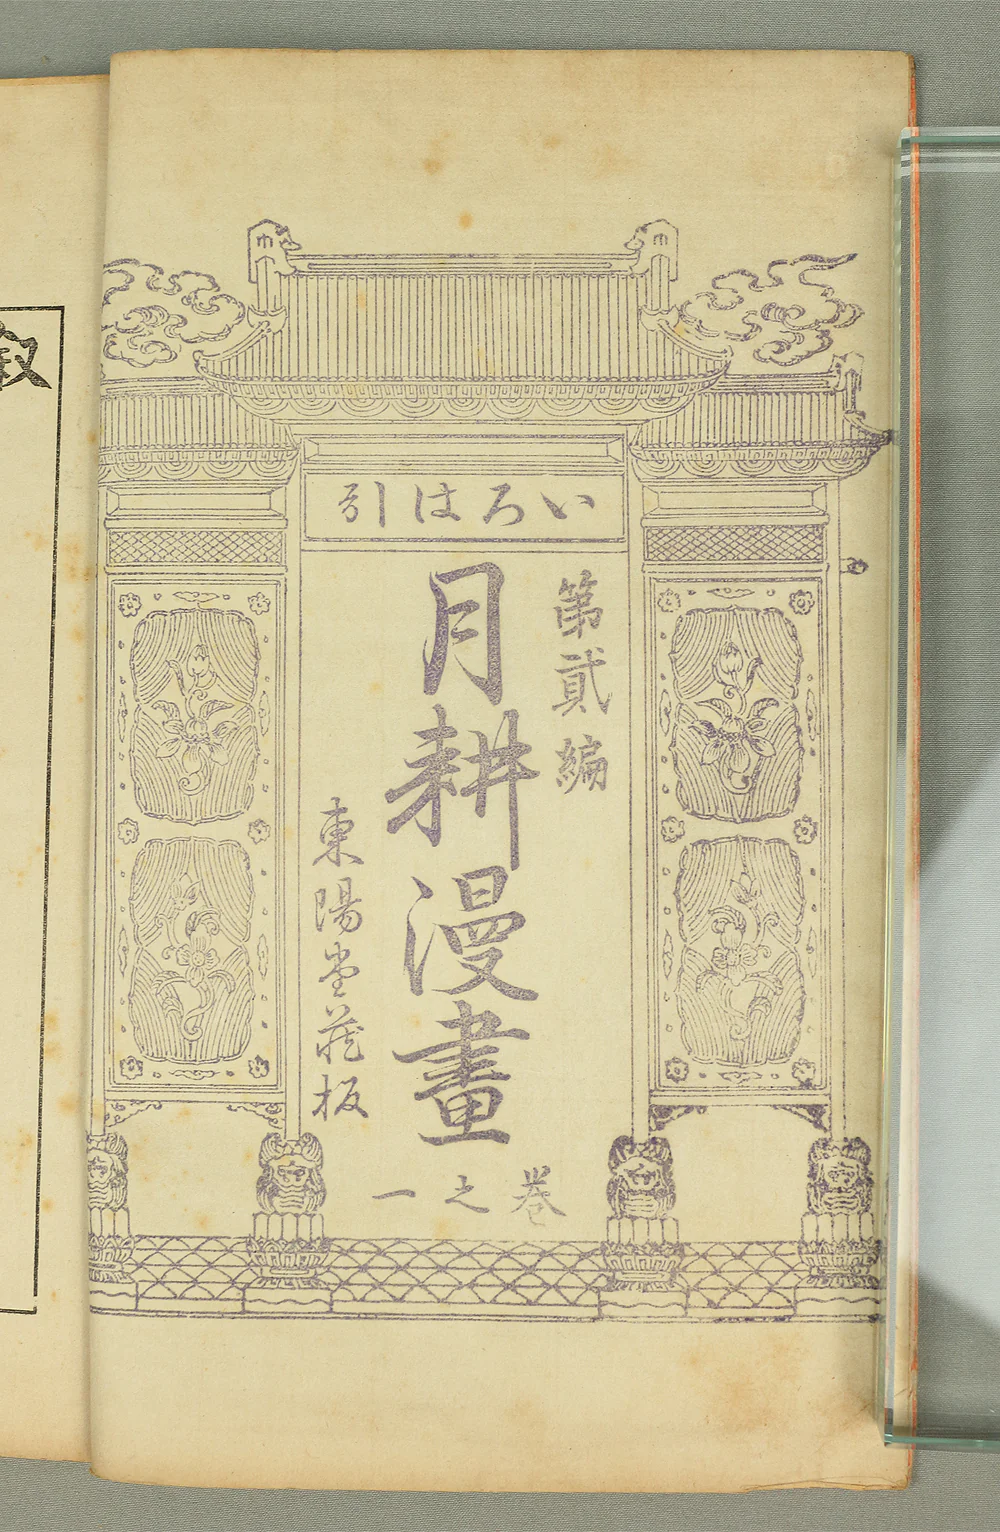 いろは引
第貳編
月耕漫畫
巻之一
東陽堂蔵板
叙